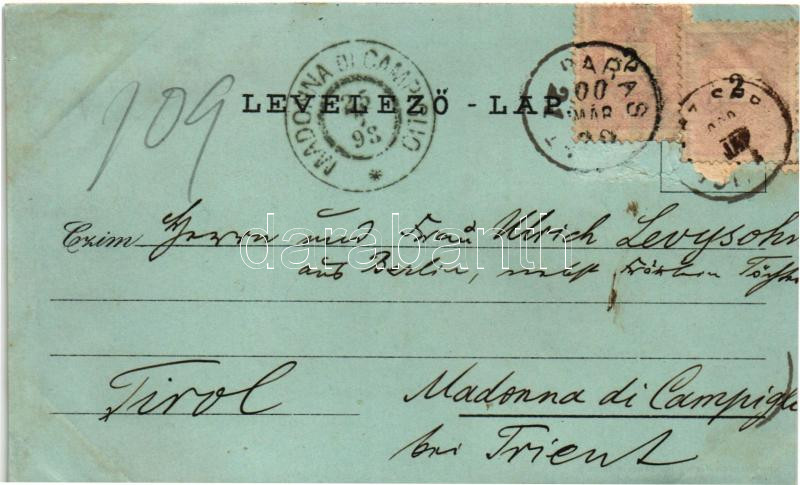 109
MADONNA DI CAMPIGLIO
98
LEVELEZŐ - LAP
2
2
PARAS
00
MÁR
darabanth
Czim Herrn und Frau Ulrich Levysohn
aus Berlin, nebst Fräulein
Tirol
Madonna di Campigl
bei Trient